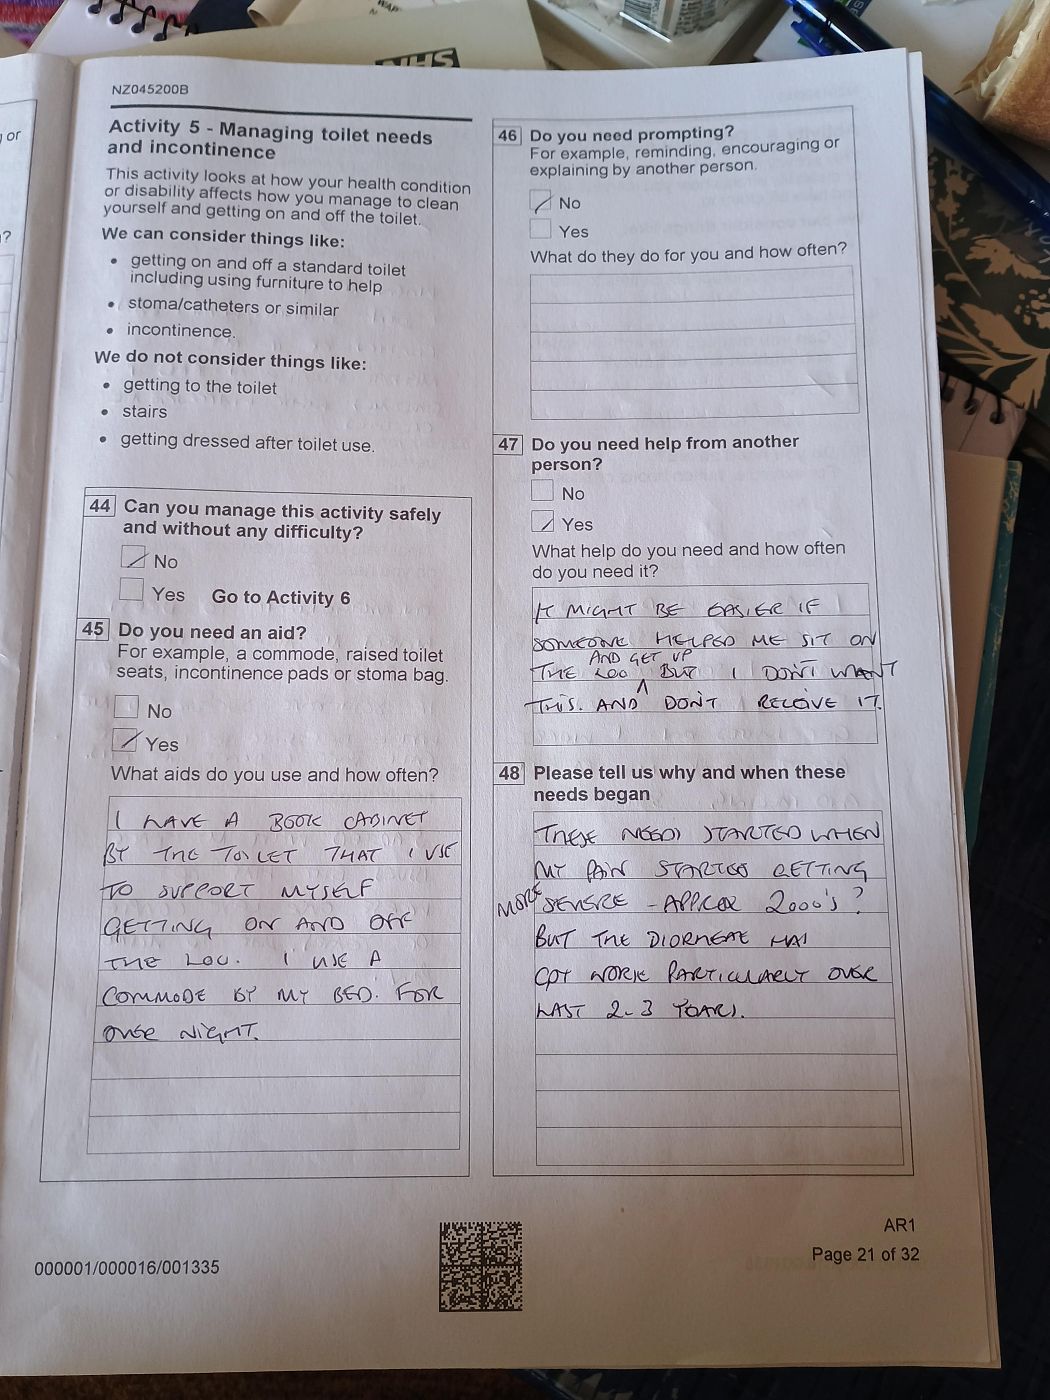 NHS
or
?
NZ045200B
Activity 5 - Managing toilet needs
and incontinence
This activity looks at how your health condition
or disability affects how you manage to clean
yourself and getting on and off the toilet.
We can consider things like:
• getting on and off a standard toilet
including using furniture to help
• stoma/catheters or similar
• incontinence.
We do not consider things like:
• getting to the toilet
• stairs
• getting dressed after toilet use.
44 Can you manage this activity safely
and without any difficulty?
No
Yes Go to Activity 6
45 Do you need an aid?
For example, a commode, raised toilet
seats, incontinence pads or stoma bag.
No
Yes
What aids do you use and how often?
I HAVE A BOOK CABINET
BY THE TOILET THAT I USE
TO SUPPORT MYSELF
GETTING ON AND OFF
THE LOO. I USE A
COMMODE BY MY BED. FOR
OVER NIGHT.
46 Do you need prompting?
For example, reminding, encouraging or
explaining by another person.
No
Yes
What do they do for you and how often?
47 Do you need help from another
person?
No
Yes
What help do you need and how often
do you need it?
IT MIGHT BE EASIER IF
SOMEONE HELPED ME SIT ON
AND GET UP
THE LOO BUT I DON'T WANT
THIS. AND DON'T RECEIVE IT.
48 Please tell us why and when these
needs began
THESE NEEDS STARTED WHEN
MY PAIN STARTED GETTING
MORE SEVERE - APPROX 2000'S?
BUT THE DIORHEAE HAS
GOT WORSE PARTICULARLY OVER
LAST 2-3 YEARS.
000001/000016/001335
AR1
Page 21 of 32